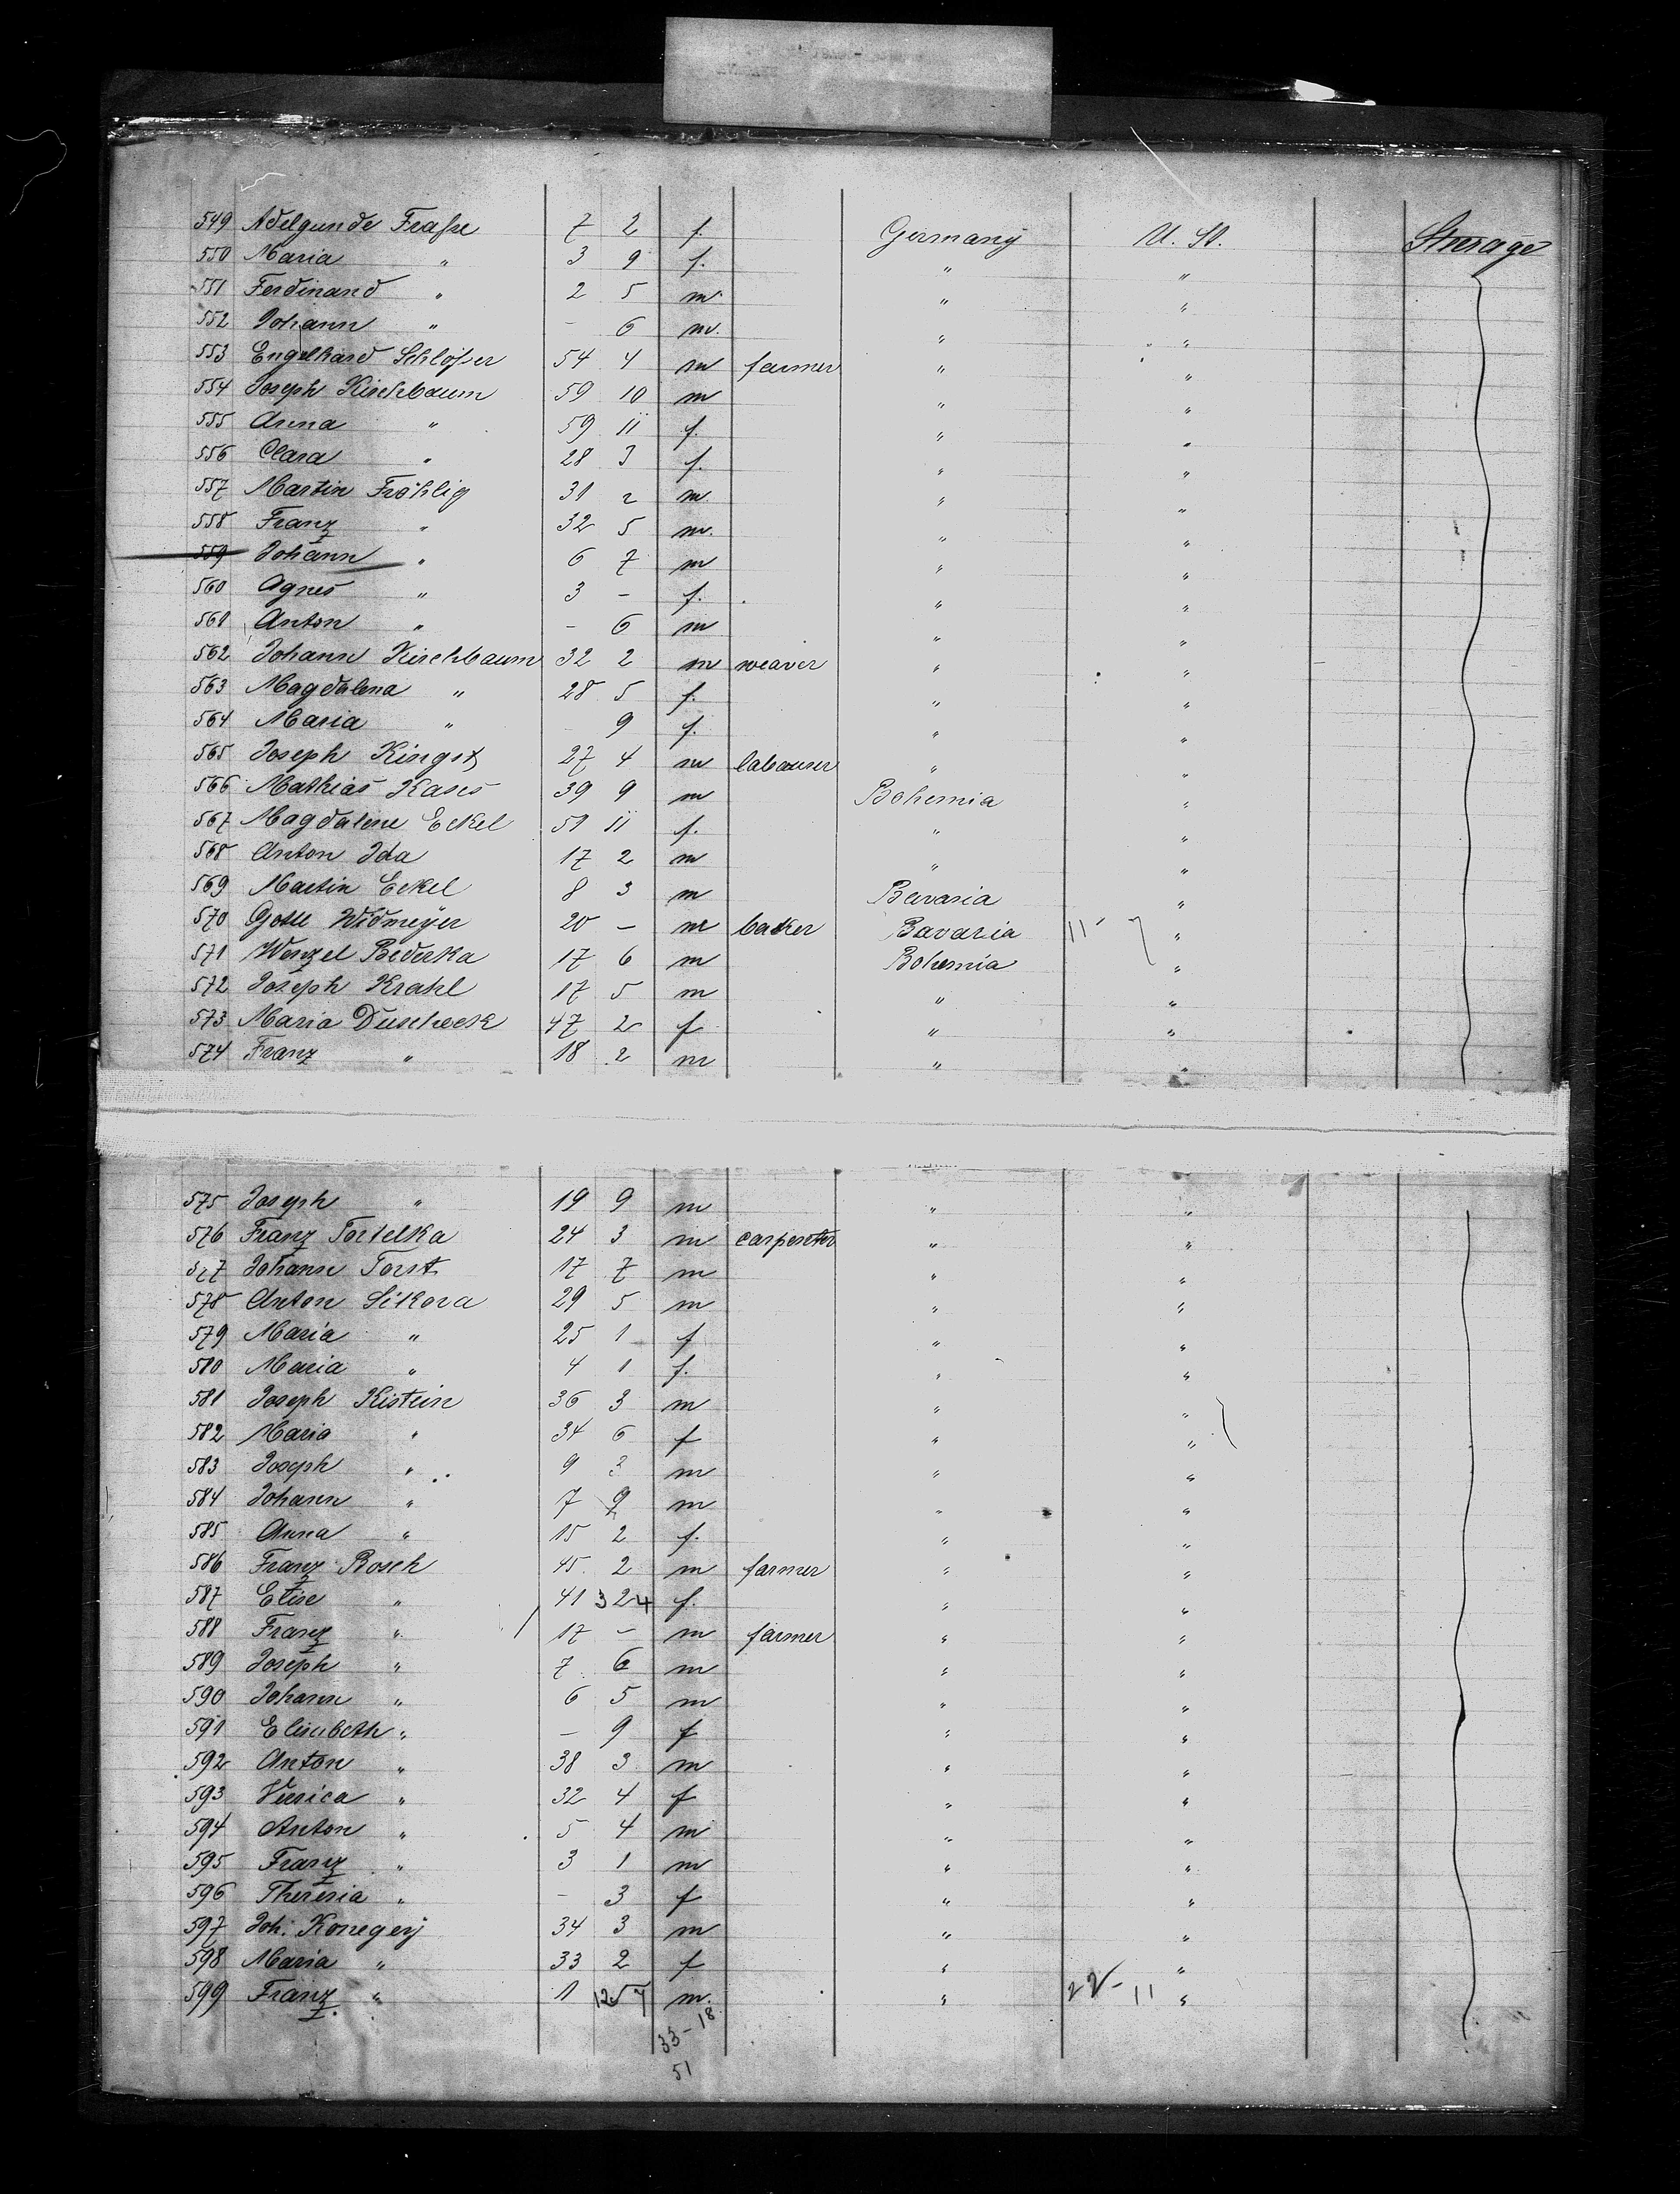 549 Adelgunde Fraſse 7 2 f. Germany U. St. Steerage
550 Maria " 3 9 f. " "
551 Ferdinand " 2 5 m. " "
552 Johann " - 6 m. " "
553 Engelhard Schlöſser 54 4 m farmer " "
554 Joseph Kirschbaum 59 10 m " "
555 Anna " 59 11 f. " "
556 Clara " 28 3 f. " "
557 Martin Fröhlig 31 2 m " "
558 Franz " 32 5 m. " "
559 Johann " 6 7 m " "
560 Agnes " 3 - f. " "
561 Anton " - 6 m " "
562 Johann Kirschbaum 32 2 m weaver " "
563 Magdalena " 28 5 f. " "
564 Maria " - 9 f. " "
565 Joseph Kingst 27 4 m labourer " "
566 Mathias Kases 39 9 m Bohemia "
567 Magdalene Eckel 51 11 f. " "
568 Anton Ida 17 2 m " "
569 Martin Eckel 8 3 m Bavaria "
570 Gottl Widmeyer 20 - m backer Bavaria 11 "
571 Wenzel Bederka 17 6 m Bohemia "
572 Joseph Krahl 17 5 m " "
573 Maria Duscheck 47 2 f " "
574 Franz " 18 2 m " "
575 Joseph " 19 9 m " "
576 Franz Tortelka 24 3 m carpenter " "
577 Johann Torst 17 7 m " "
578 Anton Sikora 29 5 m " "
579 Maria " 25 1 f " "
580 Maria " 4 1 f. " "
581 Joseph Kistein 36 3 m " "
582 Maria " 34 6 f " "
583 Joseph " 9 3 m " "
584 Johann " 7 9 m " "
585 Anna " 15 2 f. " "
586 Franz Bosch 45 2 m farmer " "
587 Elise " 41 324 f. " "
588 Franz " 17 - m farmer " "
589 Joseph " 7 6 m " "
590 Johann " 6 5 m " "
591 Elisabeth " - 9 f " "
592 Anton " 38 3 m " "
593 " 32 4 f " "
594 Anton " 5 4 m " "
595 Franz " 3 1 m " "
596 Theresia " - 3 f " "
597 Joh. Konegey 34 3 m " "
598 Maria " 33 2 f " "
599 Franz " 1 m. " 22-11 "
33-18
51